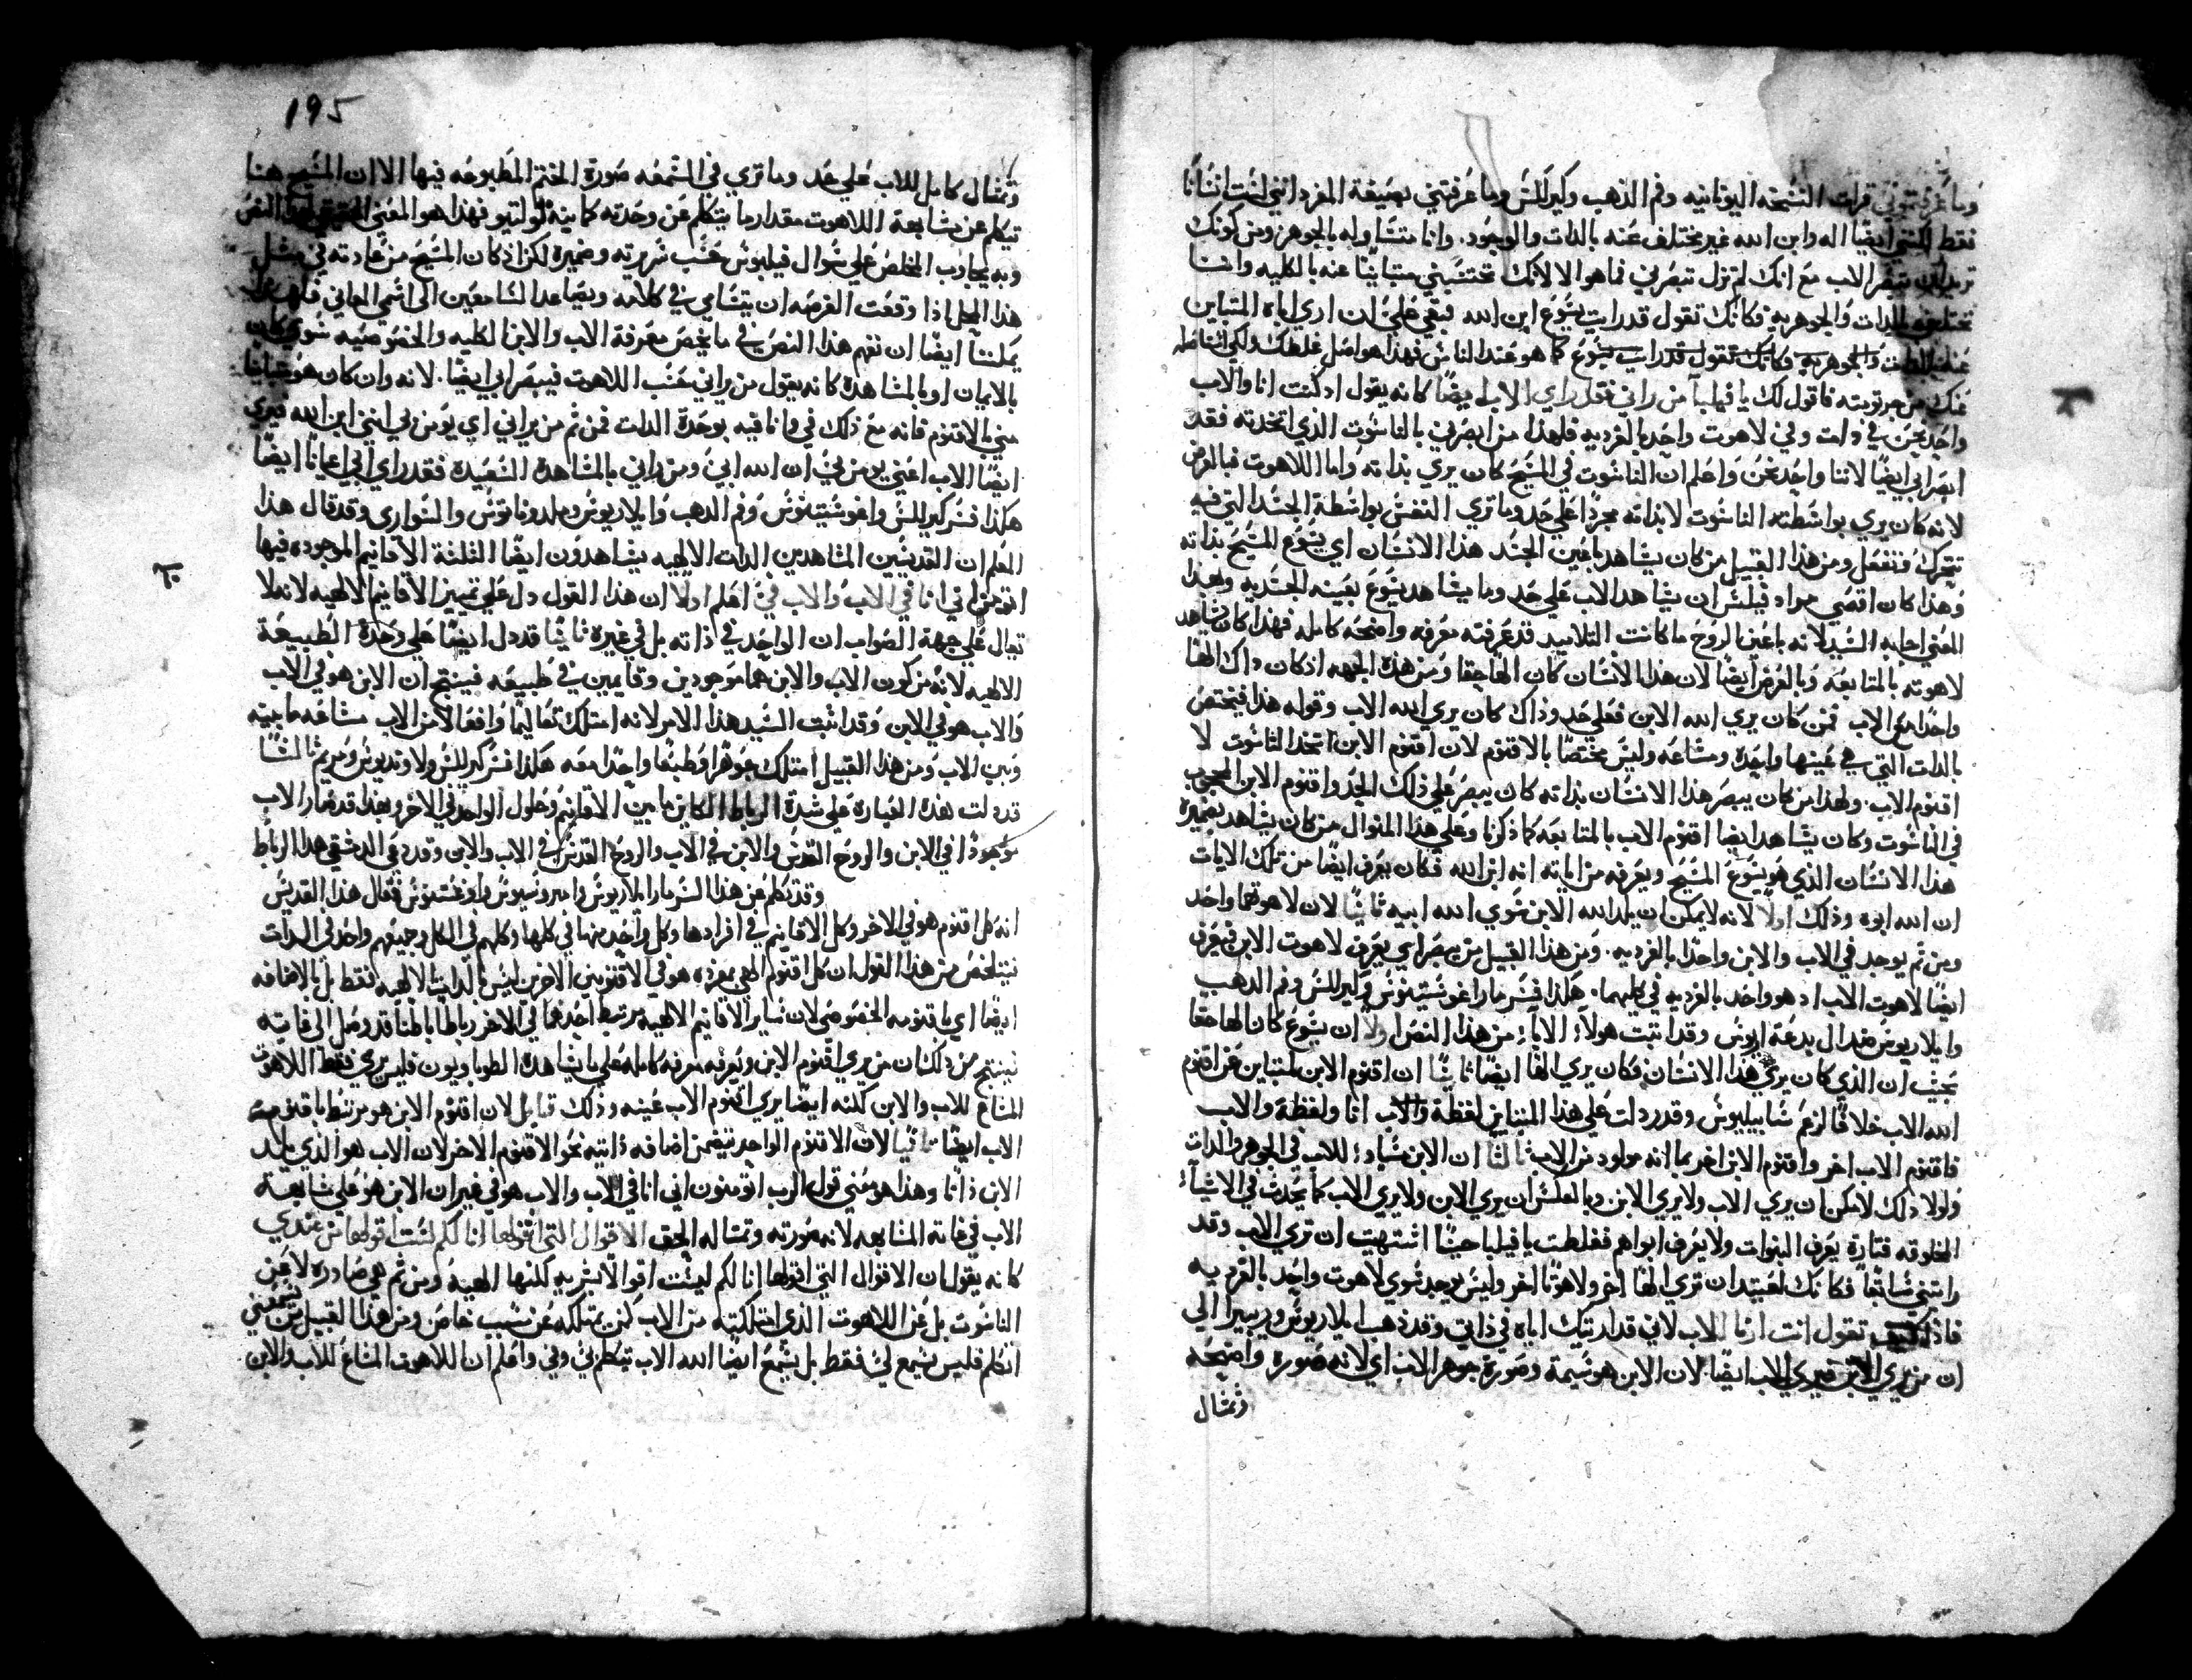 وما عرفتموني قرات النسخه اليونانيه وفم الذهب وكيرللس وما عرفتني بصيغة المفرد انني لست انسانا
فقط لكني ايضا اله وابن الله غير مختلف عنه بالدات والوجود. وانا متساو له بالجوهر ومن كونك
تريد ان تبصر الاب مع انك لم تزل تبصرني فما هو الا لانك تحتسبني متباينا عنه بالكليه وانسانا
تختلف بالدات والجوهريه فكانك تقول قد رايت يسوع ابن الله فبقي علي ان اري اباه المتباين
عنه بالدات والجوهريه فكانك تقول قد رايت يسوع كما هو عند الناس فهذا هو اصل غلطك ولكي
عنك من جرتومته فاقول لك يا فيلبا من راني فقد راي الاب ايضا كانه يقول اد كنت انا والاب
واحد نحن في دات وفي لاهوت واحد بالفرديه فلهذا من ابصرني بالناسوت الذي اتخدته فقد
ابصر ابي ايضا لاننا واحد نحن واعلم ان الناسوت في المسيح كان يري بذاته واما اللاهوت فبالعرض
لانه كان يري بواسطته الناسوت لا بذاته مجردا علي حد وما تري النفس بواسطة الجسد التي فيه
تتحرك وتفعل ومن هذا القبيل من كان يشاهد باعين الجسد هذا الانسان اي يسوع المسيح بذاته
وهذا كان اقصي مراد فيلبس ان يشاهد الاب علي حد وما يشاهد يسوع بعينه الجسديه وبهذا
المعني اجابه السيد لانه باعين الروح ما كانت التلاميد قد عرفته معرفه واضحه كامله فهذا كان يشاهد
لاهوته بالمتابعه وبالعرض ايضا لان هذا الانسان كان الها حقا ومن هذه الجهه اذ كان داك الها
واحدا مع الاب فمن كان يري الله الابن فعلي حد وذاك كان يري الله الاب وقوله هذا فيختص
بالدات التي هي عينها واحده ومشاعه وليس مختصا بالاقنوم لان اقنوم الابن اتخد الناسوت لا
اقنوم الاب. ولهذا من كان يبصر هذا الانسان بذاته كان يبصر علي ذلك الحد واقنوم الابن المحجوب
في الناسوت وكان يشاهد ايضا اقنوم الاب بالمتابعه كما ذكرنا وعلي هذا المنوال من كان يشاهد بضميره
هذا الانسان الذي هو يسوع المسيح ويعرفه من اياته انه ابن الله فكان يعرف ايضا من تلك الايات
ان الله ابوه وذلك اولا لانه لا يمكن ان يلد الله الابن سوي الله ابيه ثانيا لان لاهوتهما واحد
ومن ثم يوجد في الاب والابن واحدا بالفرديه. ومن هذا القبيل من يبصر اي يعرف لاهوت الابن فيعرف
ايضا لاهوت الاب اد هو واحد بالفرديه في كليهما. هكذا فسر مار اغوستينوس وكيرللس وفم الدهب
وايلاريوس ضد ال بدعة اريوس وقد اتبت هولاء الاباء من هذا النص اولا ان يسوع كان الها حقا
بحيث ان الذي كان يري هذا الانسان فكان يري الها ايضا ثانيا ان اقنوم الابن متباين عن اقنوم
الله الاب خلافا لزعم سابيليوس وقد دلت علي هذا المباين لفظة والاب انا ولفظة والاب
فاقنوم الاب اخر واقنوم الابن اخر بما انه مولود من الاب ثالثا ان الابن مساو للاب في الجوهر والدات
ولولا دلك لامكن ان يري الاب ولا يري الابن وبالعكس ان يري الابن ولا يري الاب كما يحدث في الاشياء
المخلوقه فتارة يعرف البنوات ولا يعرف ابواهم فغلطت يا فيلبا حينا اشتهيت ان تري الاب وقد
رايتني سابقا فكانك تعتبد ان تري الها اخر ولاهوتا اخر وليس يوجد سوي لاهوت واحد بالفرديه
فاذا كيف تقول انت ارنا الاب لاني قد اريتك اياه في ذاتي وقد ذهب ايلاريوس وريبيرا الي
ان من يري الابن فيري الاب ايضا. لان الابن هو شيمة وصورة جوهر الاب اي لانه صوره واضحه
وتمثال
195
وتمثال كامل للاب علي حد وما تري في الشمعه صورة الختم المطبوعه فيها الا ان المسيح هنا
تكلم عن مشابعة اللاهوت مقدار ما يتكلم عن وحدته كما بينه تولتيو فهذا هو المعني الحقيقي لهذا النص
وبه يجاوب المخلص علي سوال فيلبوس حسب شهرته وضميره لكن اذ كان المسيح من عادته في مثل
هذا المحل اذا وقعت الفرصه ان يتسامي في كلامه ويصاعد السامعين الي اسمي المعاني فلهذا
يمكننا ايضا ان نفهم هذا النص في ما يخص معرفة الاب والابن الكليه والخصوصيه سوي كان
بالايمان او بالمشاهده كانه يقول من راني حسب اللاهوت فيبصر ابي ايضا. لانه وان كان هو متباينا
مني بالاقنوم فانه مع ذلك في وانا فيه بوحدة الدات فمن ثم من يراني اي يومن بي انني ابن الله فيري
ايضا الاب اعني يومن بي ان الله ابي ومن يراني بالمشاهدة السعيدة فقد راي ابي اعيانا ايضا
هكذا فسر كيرللس واغوستينوس وفم الدهب وايلاريوس وملدوناتوس والنواري وقد قال هذا
المعلم ان القديسين المشاهدين الدات الالهيه يشاهدون ايضا الثلثة الاقانيم الموجوده فيها
اتومن اني انا في الاب والاب فيّ اعلم اولا ان هذا القول دل علي تمييز الاقانيم الالهيه لانه لا
يقال علي جهة الصواب ان الواحد في ذاته بل في غيره ثانيا قد دل ايضا علي وحدة الطبيعة
الالهيه لانه من كون الاب والابن هما موجودين وقايمين في طبيعه فينتج ان الابن هو في الاب
والاب هو في الابن وقد اثبت السيد هذا الامر لانه امتلك تعاليما وافعالا من الاب مشاعه ما بينه
وبين الاب ومن هذا القبيل امتلك جوهرا وطبعا واحدا معه هكذا فسر كيرللس ولاونديوس وميم ثالثا
قد دلت هذه العباره علي شدة الرباط الكاين ما بين الاقانيم وحلول الواحد في الاخر وبهذا قد صار الاب
موجودا في الابن والروح القدس والابن في الاب والروح القدس في الاب والابن وقد دعي الدمشقي هذا الرباط
وقد تكلم عن هذا السر مار ايلاريوس وامبروسيوس واوغسسنوس فقال هذا القديس
انه كل اقنوم هو في الاخر وكل الاقانيم في افرادها وكل واحد منها في كلها وكلهم في الكل وجميعهم واحد في الدات
فيتلخص من هذا القول ان كل اقنوم الهي بمفرده هو في الاقنومين الاخرين ليس بالدات الالهيه فقط بل بالاضافه
ايضا اي باقنومه الخصوصي لان ساير الاقانيم الالهيه مرتبط احدهما في الاخر رباطا باطنا قد وصل الي غايته
فينتج من دلك ان من يري اقنوم الابن ويعرفه معرفه كامله علي ما يشاهده الطوباويون فليس يري فقط اللاهوت
المشاع للاب والابن لكنه ايضا يري اقنوم الاب عينه وذلك قابل لان اقنوم الابن هو مرتبط باقنوم
الاب ايضا ثانيا لان الاقنوم الواحد يتضمن اضافه ذاتيه نحو الاقنوم الاخر لان الاب هو الذي يلد
الابن ذاتا وهذا هو معني قول الرب اتومنون اني انا في الاب والاب هو في غير ان الابن هو علي مشابعة
الاب في غاية المشابعه لانه صورته وتمثاله الحق الاقوال التي اقولها انا لكم لست اقولها من عندي
كانه يقول ان الاقوال التي اقولها انا لكم ليست اقوالا بشريه لكنها الهية ومن ثم هي صادره لا عن
الناسوت بل عن اللاهوت الذي امتلكته من الاب كمن يمتلكه عن سبب خاص ومن هذا القبيل من يسمعني
اتكلم فليس يسمع لي فقط بل يسمع ايضا الله الاب يتكلم فيّ وبي واعلم ان اللاهوت المشاع للاب والابن